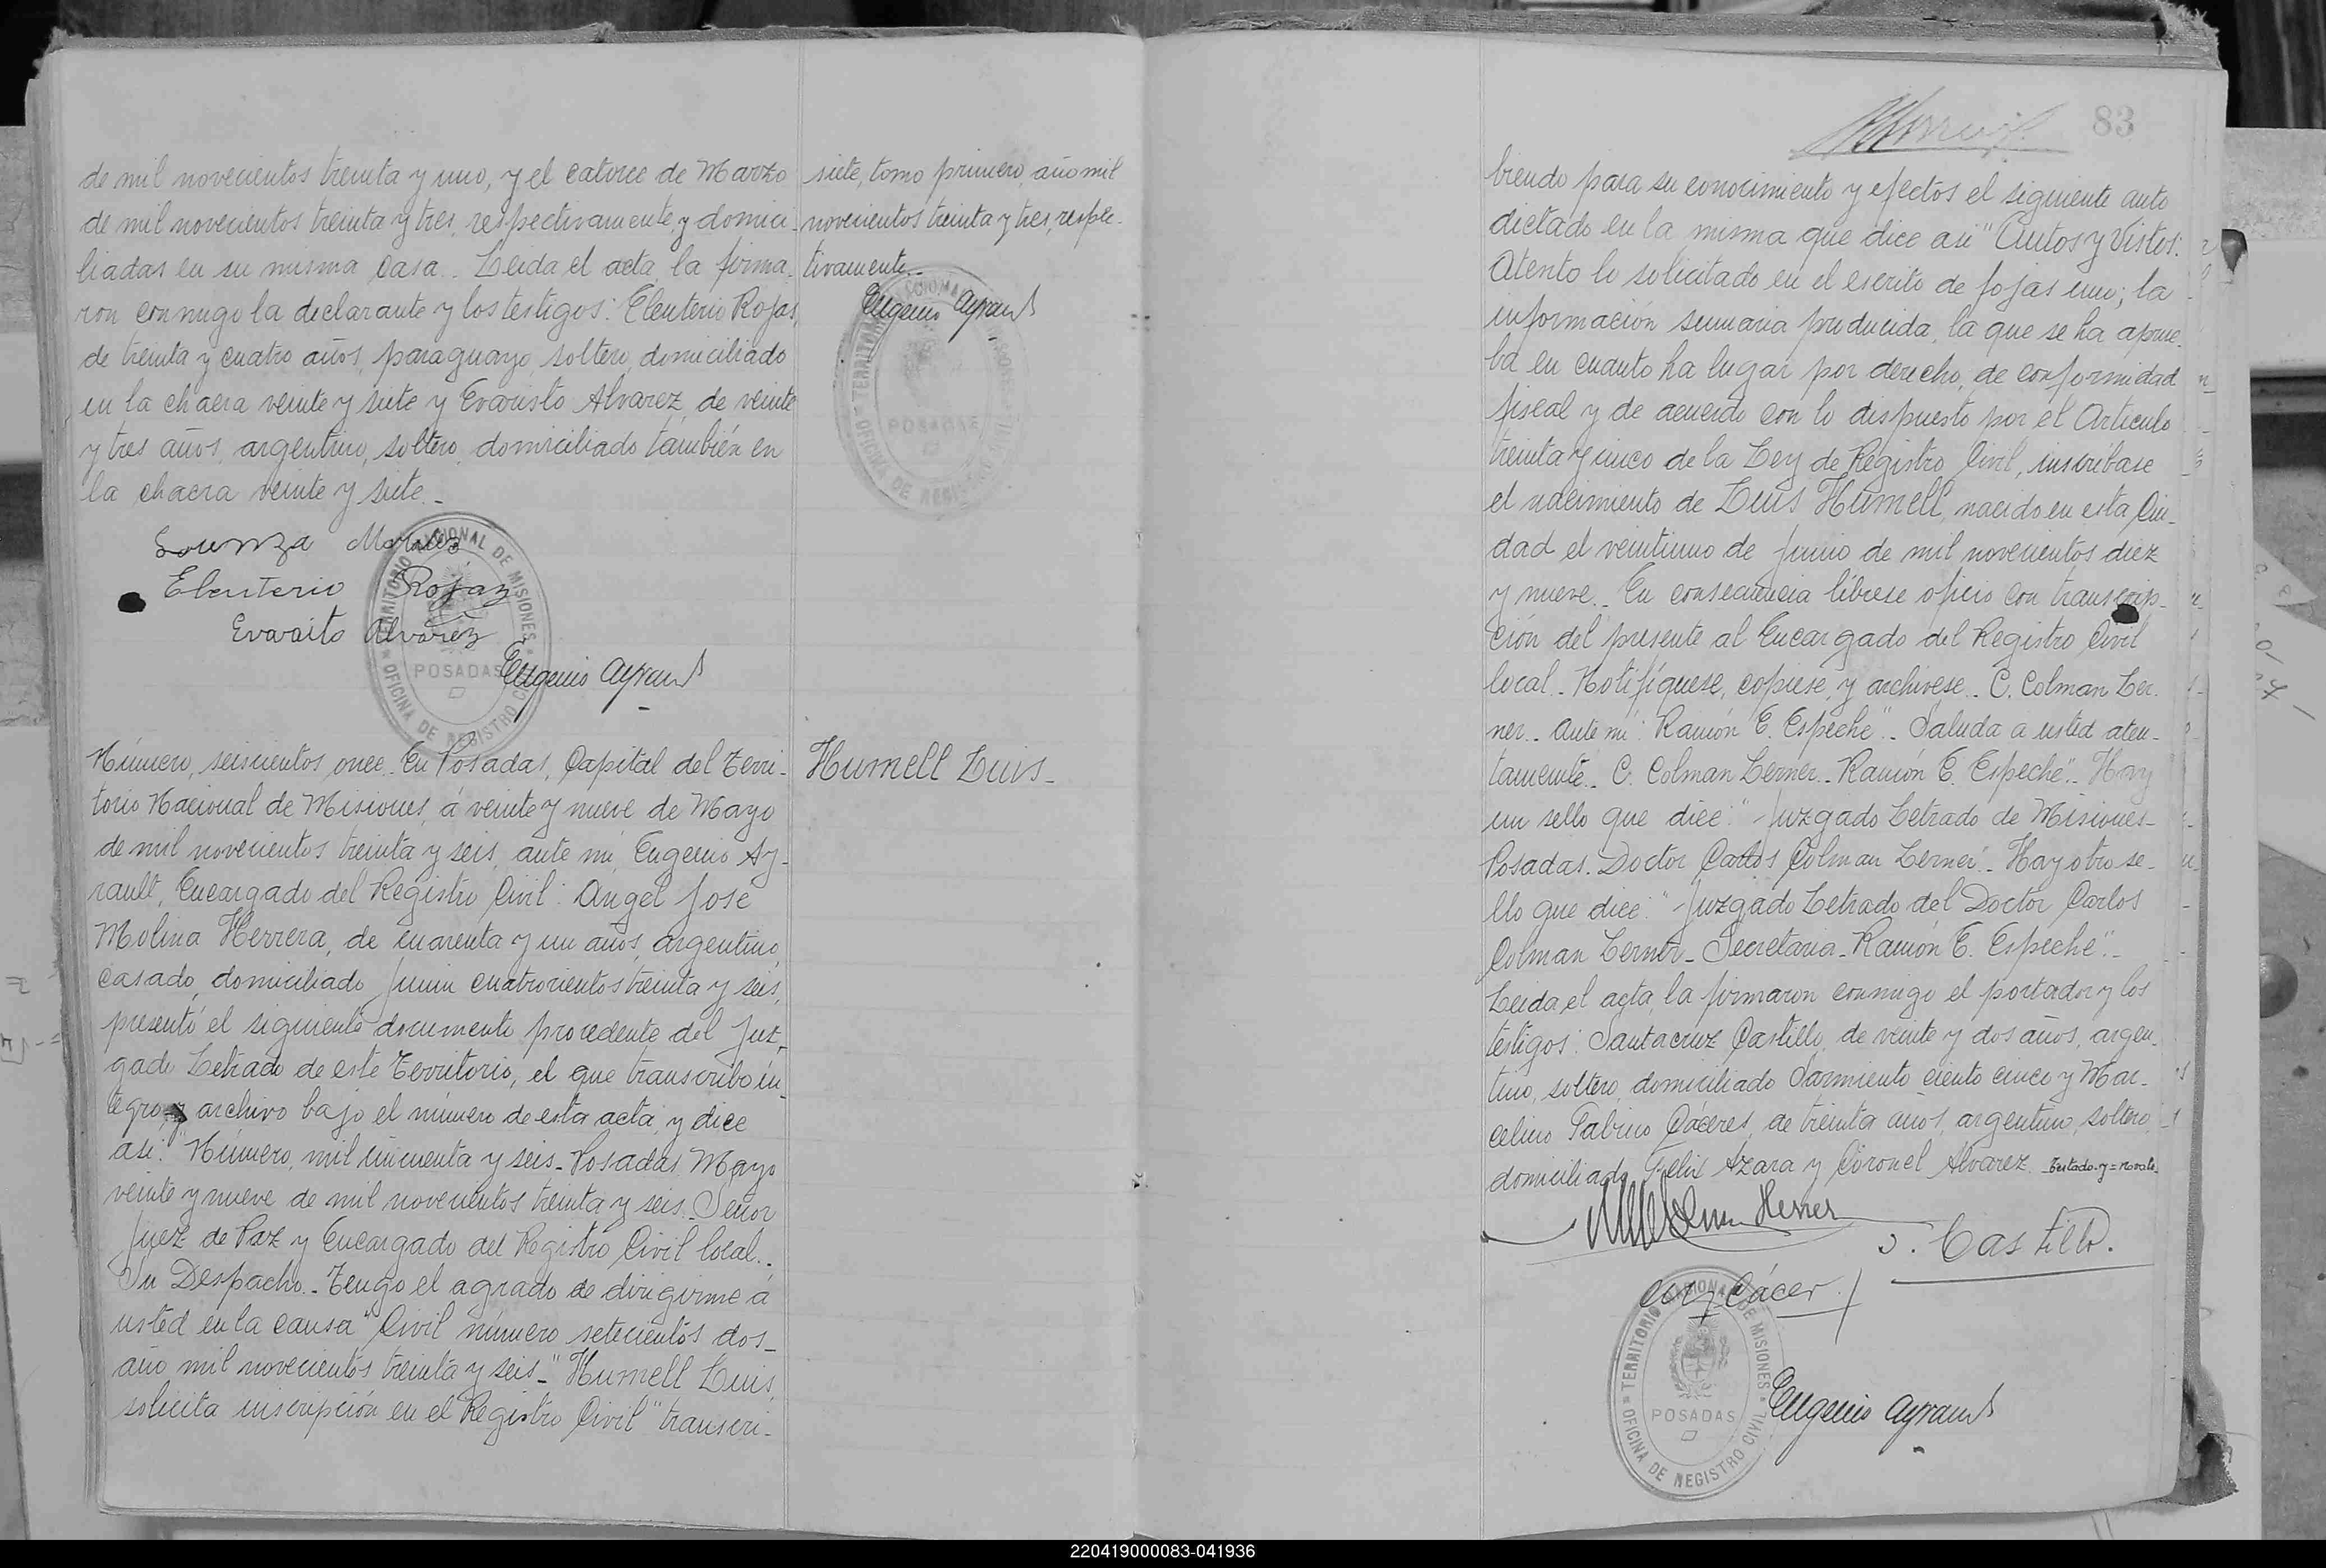 de mil novecientos treinta y uno, y el catorce de Marzo
de mil novecientos treinta y tres, respectivamente, y domici-
liadas en su misma casa.- Leida el acta, la firma-
ron conmigo la declarante y los testigos: Eleuterio Rojas,
de treinta y cuatro años, paraguayo, soltero, domiciliado
en la chacra veinte y siete y Evaristo Alvarez, de veinte
y tres años, argentino, soltero, domiciliado también en
la chacra veinte y siete.-
siete, tomo primero, año mil
novecientos treinta y tres, respec-
tivamente.-
Eugenio Ayrault
TERRITORIO NACIONAL DE MISIONES
POSADAS
OFICINA DE REGISTRO CIVIL
Eleuterio Rojaz
Evarito Alvarez
Eugenio Ayrault
TERRITORIO NACIONAL DE MISIONES
POSADAS
OFICINA DE REGISTRO CIVIL
Humell Luis-
Número, seiscientos once.- En Posadas, Capital del Terri-
torio Nacional de Misiones, á veinte y nueve de Mayo
de mil novecientos treinta y seis, ante mí, Eugenio Ay-
rault, Encargado del Registro Civil: Angel José
Molina Herrera, de cuarenta y un años, argentino,
casado, domiciliado Junin cuatrocientos treinta y seis,
presentó el siguiente documento procedente del Juz-
gado Letrado de este Territorio, el que transcribo ín-
tegro, y archivo bajo el número de esta acta, y dice
asi: "Número, mil cincuenta y seis- Posadas, Mayo
veinte y nueve de mil novecientos treinta y seis.- Señor
Juez de Paz y Encargado del Registro Civil local.-
Su Despacho.- Tengo el agrado de dirigirme á
usted en la causa "Civil número setecientos dos-
año mil novecientos treinta y seis-" Humell Luis,
solicita inscripción en el Registro Civil" transcri-
83
biendo para su conocimiento y efectos el siguiente auto
dictado en la misma que dice asi "Autos y Vistos:
Atento lo solicitado en el escrito de fojas uno; la
información sumaria producida, la que se ha aprue-
ba en cuanto ha lugar por derecho, de conformidad
fiscal y de acuerdo con lo dispuesto por el Articulo
treinta y cinco de la Ley de Registro Civil, inscríbase
el nacimiento de Luis Humell, nacido en esta Ciu-
dad el veintiuno de Junio de mil novecientos diez
y nueve.- En consecuencia líbrese oficio con transcrip-
ción del presente al Encargado del Registro Civil
local.- Notifíquese, copiese y archivese.- C. Colman Ler-
ner.- Ante mí: Ramón E. Espeche".- Saluda a usted aten-
tamente.- C. Colman Lerner.- Ramón E. Espeche".- Hay
un sello que dice: "Juzgado Letrado de Misiones-
Posadas. Doctor Carlos Colman Lerner.- Hay otro se-
llo que dice: "Juzgado Letrado del Doctor Carlos
Colman Lerner- Secretaria- Ramón E. Espeche".-
Leida el acta, la firmaron conmigo el portador y los
testigos: Santacruz Castillo, de veinte y dos años, argen-
tino, soltero, domiciliado Sarmiento ciento cinco y Mar-
celino Fabino Cáceres, de treinta años, argentino, soltero,
domiciliado Felix Azara y Coronel Alvarez. Testado-y=no vale.
S. Castillo.
Eugenio Ayrault
TERRITORIO NACIONAL DE MISIONES
POSADAS
OFICINA DE REGISTRO CIVIL
220419000083-041936